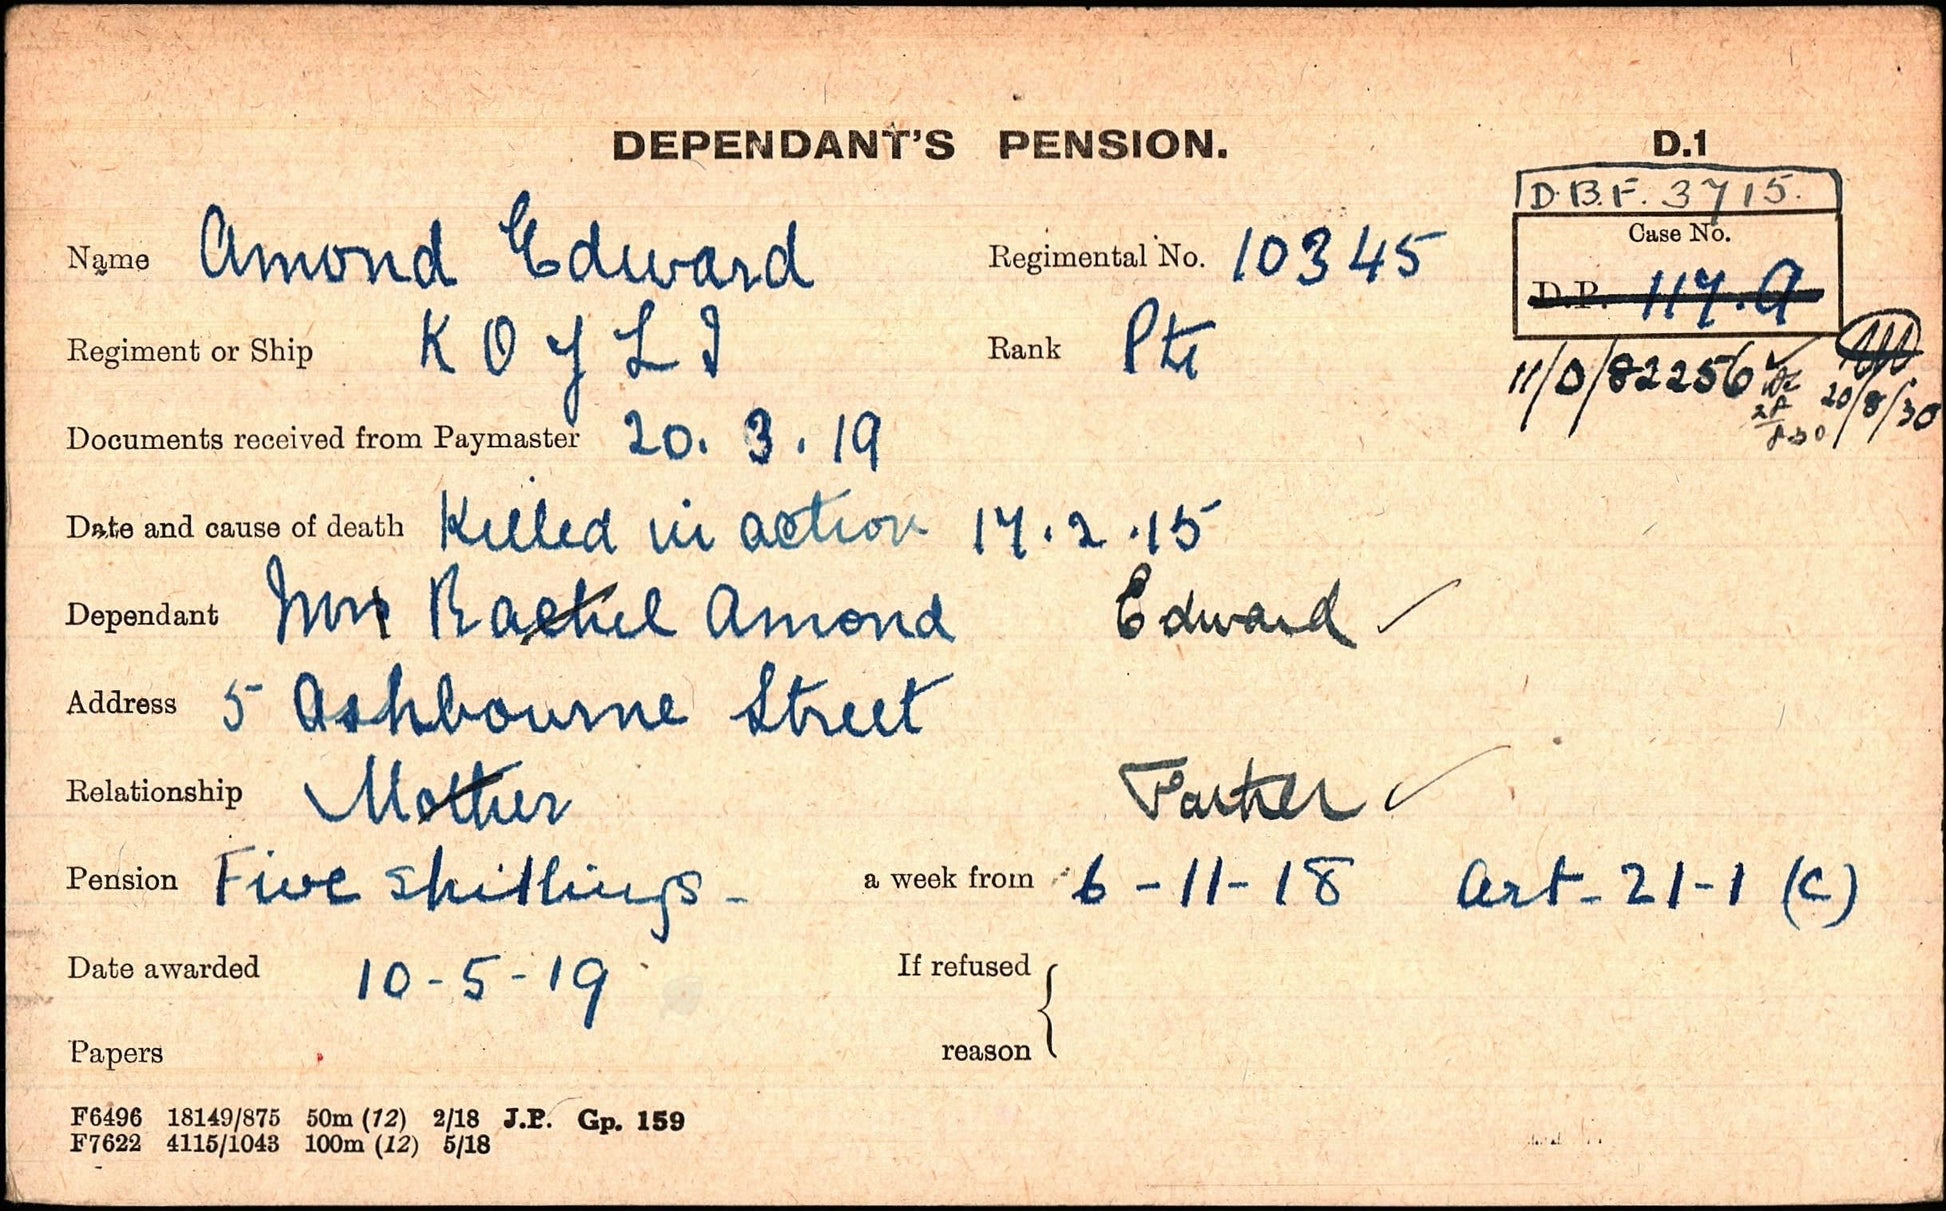 DEPENDANT'S PENSION. D.1
D.B.F. 3715.
Case No.
D.P. 117.A
Name Amond Edward Regimental No. 10345
Regiment or Ship K O Y L I Rank Pte
11/D/82256 20/8/30
Documents received from Paymaster 20. 3. 19
Date and cause of death Killed in action 17.2.15
Dependant Mrs Rachel Amond Edward
Address 5 Ashbourne Street
Relationship Mother Father
Pension Five shillings - a week from 6-11-18 Art-21-1 (c)
Date awarded 10-5-19 If refused
Papers reason
F6496 18149/875 50m (12) 2/18 J.P. Gp. 159
F7622 4115/1043 100m (12) 5/18